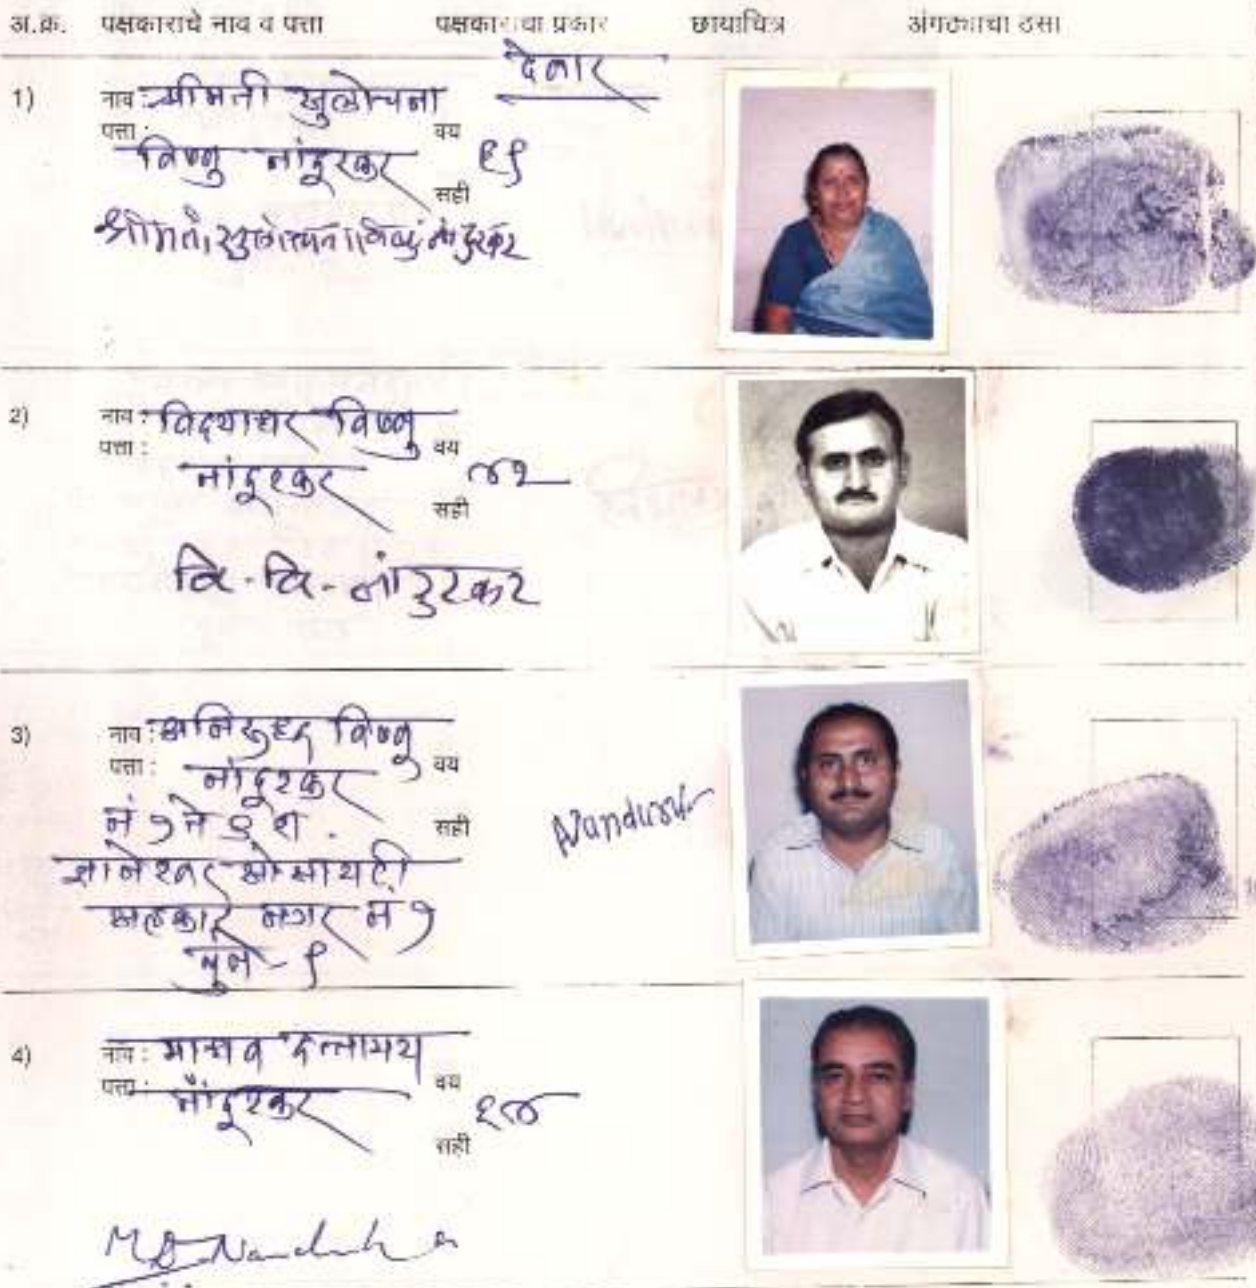 अ.क्र. पक्षकाराचे नाव व पत्ता पक्षकाराचा प्रकार छायाचित्र अंगठ्याचा ठसा
देणार
1) नाव : श्रीमती सुलोचना
पत्ता : वय
विष्णु नांदुरकर ६९
सही
श्रीमती सुलोचना विष्णु नांदुरकर
2) नाव : विद्याधर विष्णु
पत्ता : वय
नांदुरकर ४२
सही
वि. वि. नांदुरकर
3) नाव : अनिरुद्ध विष्णु
पत्ता : नांदुरकर वय
सही
Nandurkar
ज्ञानेश्वर सोसायटी
सहकार नगर नं १
पुणे - ९
4) नाव : माधव दत्तात्रय
पत्ता : वय
नांदुरकर ६४
सही
M.D. Nandurkar